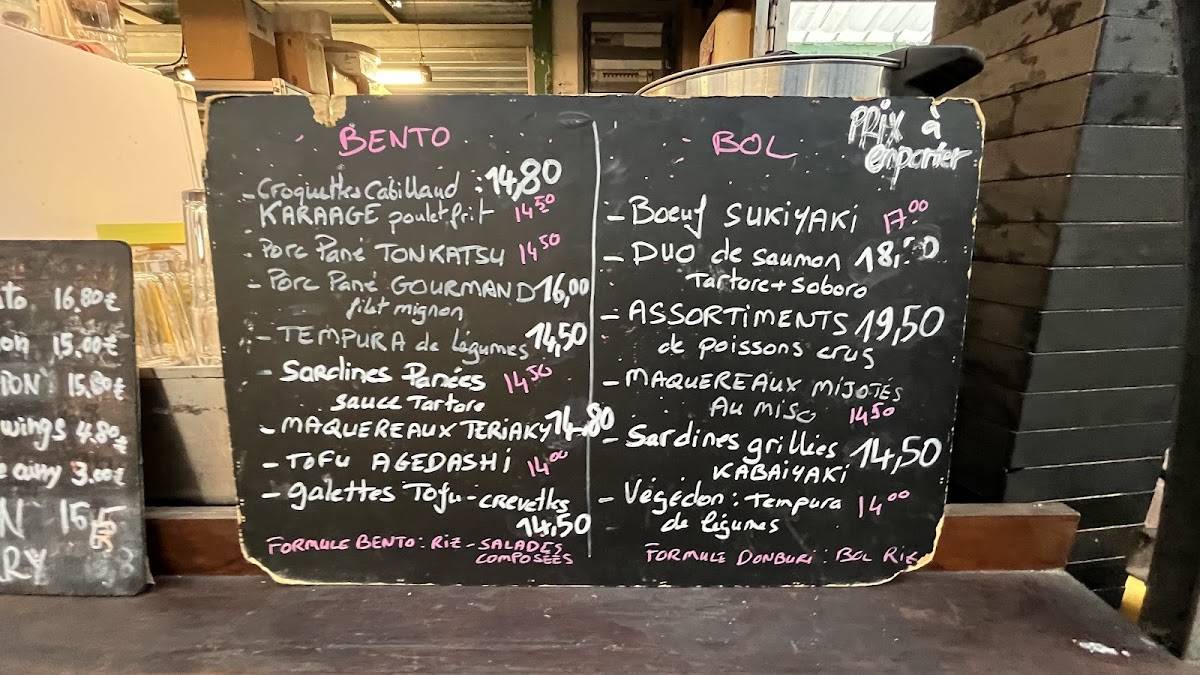 BENTO
- Croquettes Cabillaud : 14,80
KARAAGE poulet frit 14 50
- Porc Pané TONKATSU 14 50
- Porc Pané GOURMAND 16,00
filet mignon
- TEMPURA de légumes 14,50
- Sardines Panées 14 50
sauce Tartare
- MAQUEREAUX TERIAKY 14,80
- TOFU AGEDASHI 14 00
- galettes Tofu - crevettes
14,50
FORMULE BENTO : RIZ - SALADES
COMPOSÉES
PRIX à
emporter
BOL
- Boeuf SUKIYAKI 17 00
- DUO de saumon
Tartare + Soboro
- ASSORTIMENTS 19,50
de poissons crus
- MAQUEREAUX MIJOTÉS
AU MISO 14 50
- Sardines grillées 14,50
KABAIYAKI
- Végédon : Tempura 14 00
de légumes
FORMULE DONBURI : BOL RIZ
16.80€
15.00€
15,80€
wings 4.80€
3.00€